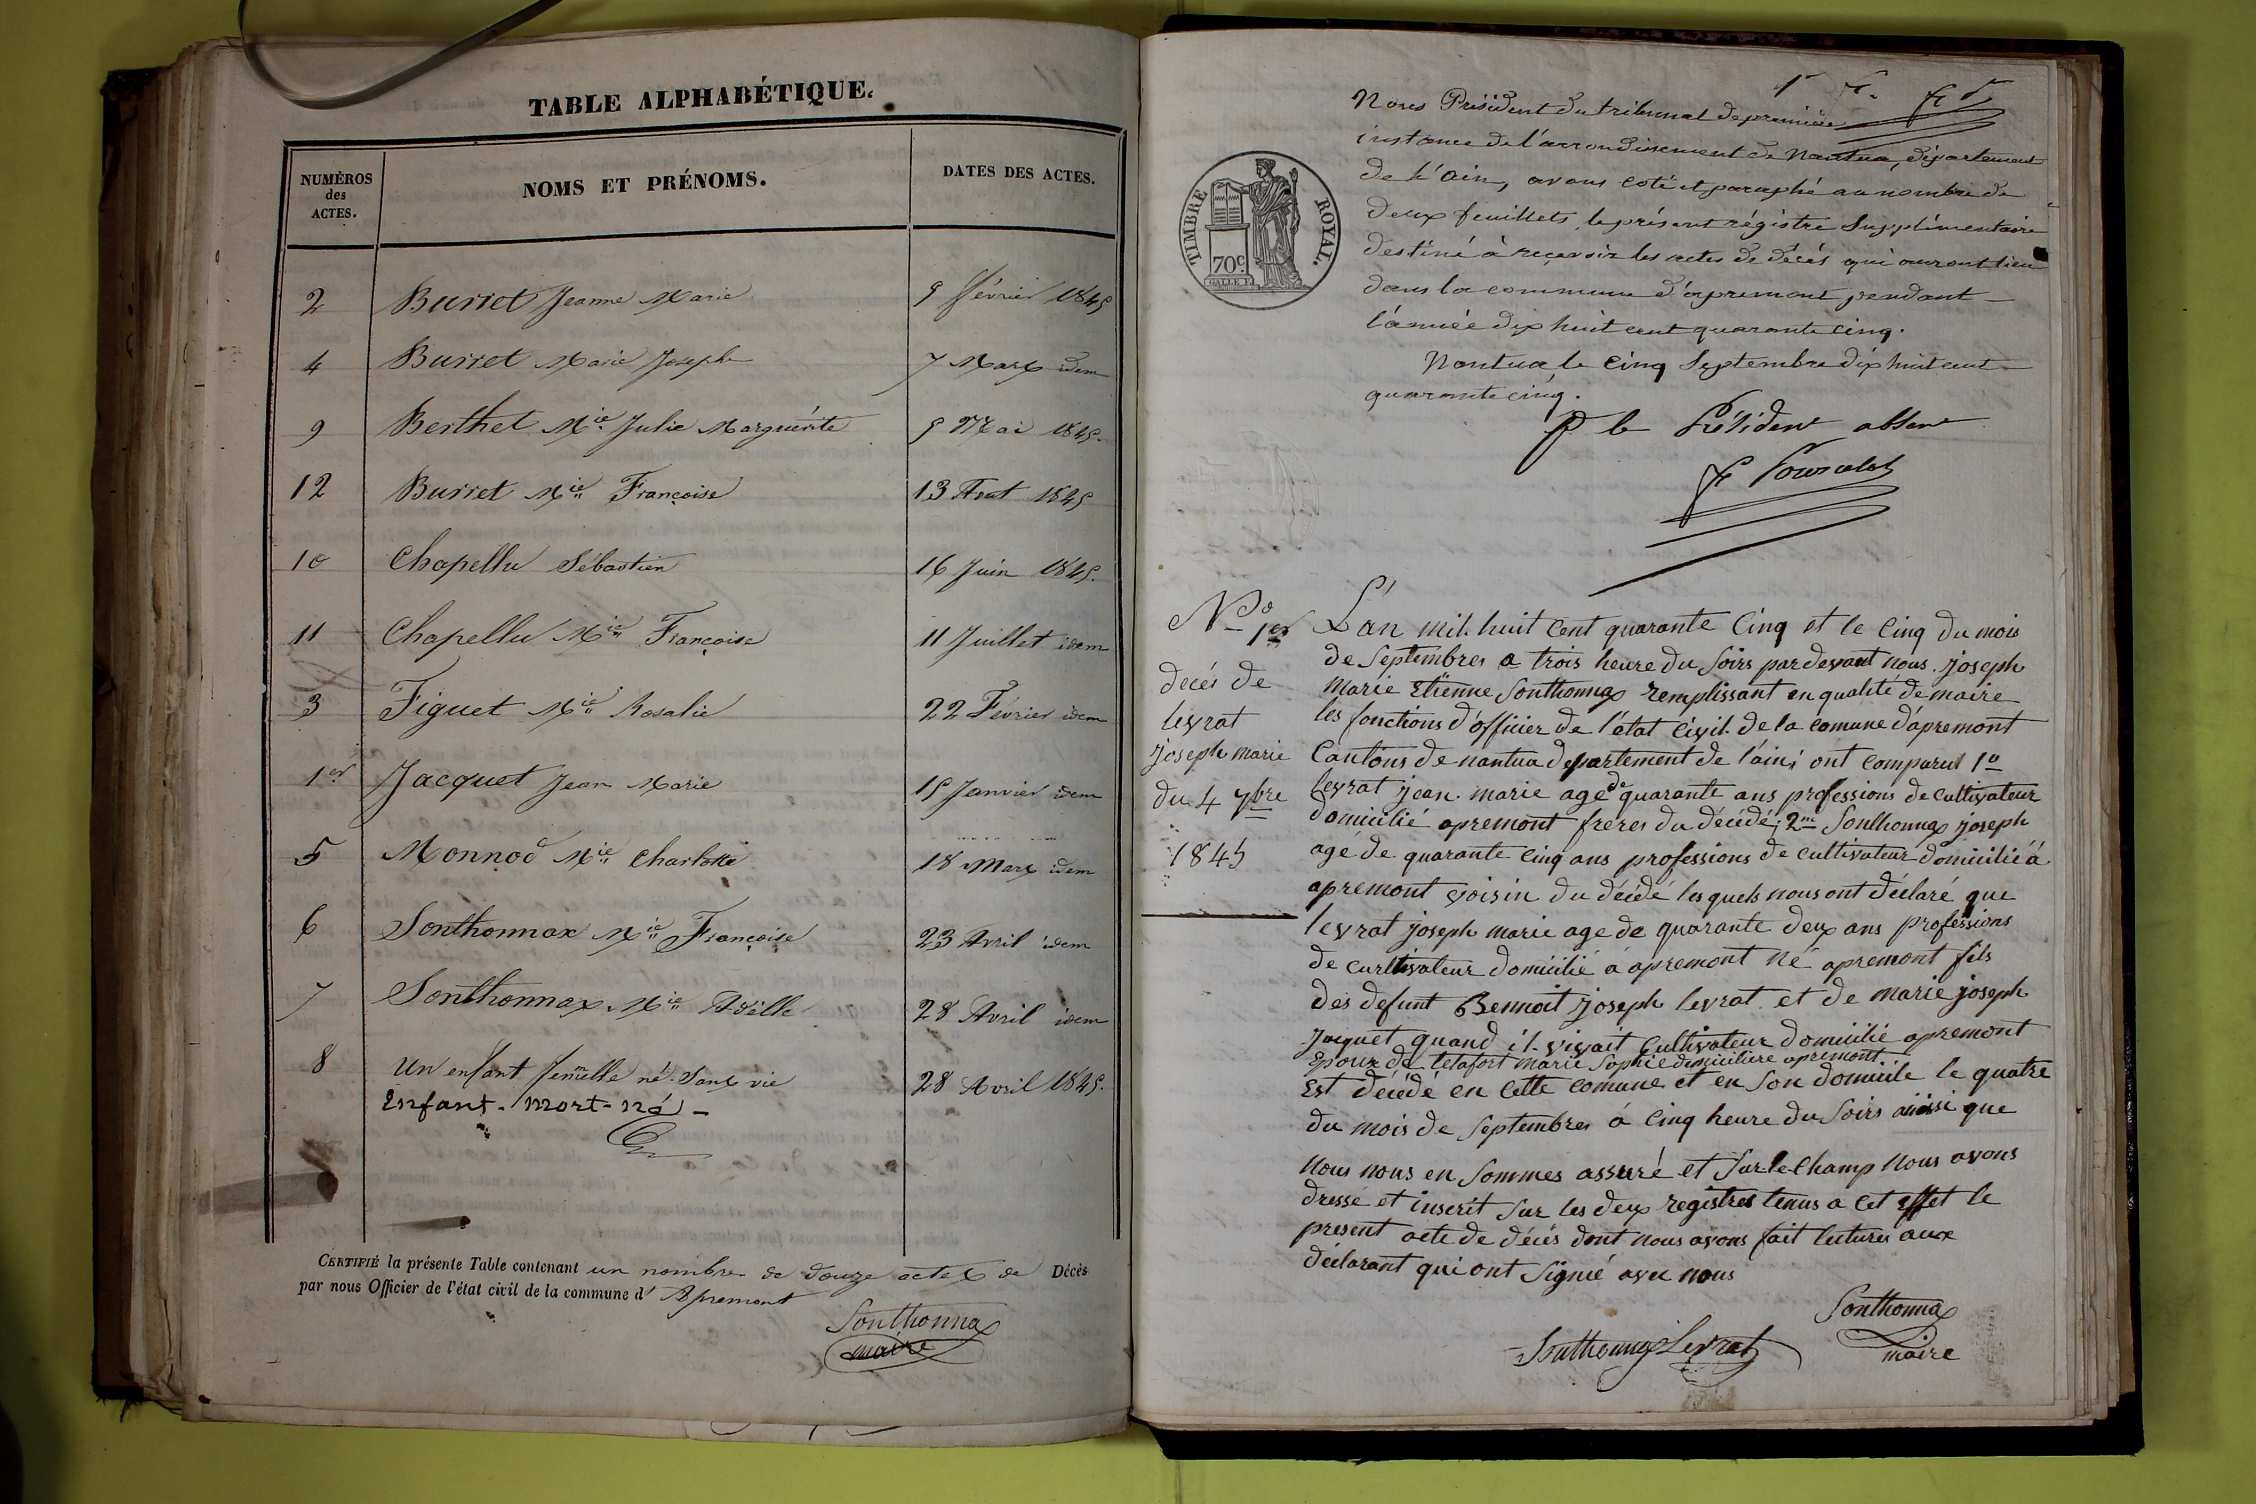 TABLE ALPHABÉTIQUE.
NUMÉROS des ACTES.
NOMS ET PRÉNOMS.
DATES DES ACTES.
2 Burret Jeanne Marie 9 février 1845
4 Burret Marie Joseph 7 Mars idem
9 Berthet Mie Julie Marguérite 9 Mai 1845.
12 Burret Mie Françoise 13 Aout 1845
10 Chapellu Sébastien 16 Juin 1845.
11 Chapellu Mie Françoise 11 Juillet idem
3 Figuet Mie Rosalie 22 Février idem
1er Jacquet Jean Marie 15 Janvier idem
5 Monnod Mie Charlotte 18 Mars idem
6 Sonthonnax Mie Françoise 23 Avril idem
7 Sonthonnax Mie Adèlle 28 Avril idem
8 Un enfant femelle né Sans vie 28 Avril 1845.
Enfant-mort-né-
CERTIFIÉ la présente Table contenant un nombre de douze actes de Décès
par nous Officier de l'état civil de la commune d' Apremont
Sonthonnax
maire
Nous Président du tribunal de première
instance de l'arrondissement de Nantua, département
de l'Ain, avons coté et paraphé au nombre de
deux feuillets, le présent régistre Supplémentaire
destiné à reçevoir les actes de décès qui auront lieu
dans la commune d'apremont pendant
l'année dix huit cent quarante cinq.
Nantua le cinq Septembre dix huit cent
quarante cinq.
P le Président absent
TIMBRE ROYAL.
70c.
No 1er
décés de
levrat
joseph marie
du 4 7bre
1845
L'an mil huit cent quarante Cinq et le Cinq du mois
de Septembres a trois heure du Soirs pardevant nous joseph
Marie Etienne Sonthonnax remplissant en qualité de maire
les fonctions d'officier de l'état Civil de la comune d'apremont
Cantons de nantua departement de l'ain, ont comparut 1o
levrat jean marie age de quarante ans professions de cultivateur
domicilié apremont freres du décédé, 2me Sonthonnax joseph
agé de quarante cinq ans professions de cultivateur domicilié à
apremont voisin du décédé les quels nous ont déclaré que
levrat joseph marie age de quarante deux ans professions
de curltivateur domicilié á apremont né apremont fils
des defunt Bennoit joseph levrat et de marie joseph
jacquet quand il vivait cultivateur domicilié apremont
Epoux de tetafort marie Sophie domiciliere apremont
Est décédé en cette comune et en Son domicile le quatre
du mois de Septembres á cinq heure du Soirs ainssi que
Nous nous en Sommes assuré et Sur le Champ Nous avons
dressé et inscrit Sur les deux registres tenus a cet effet le
present acte de décés dont nous avons fait lectures aux
déclarant qui ont Signé avec nous
Sonthonnax
maire
Sonthonnax Levrat